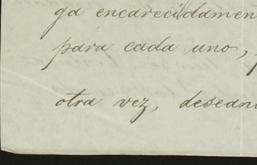 ga encarecidamen
para cada uno,
otra vez, desean